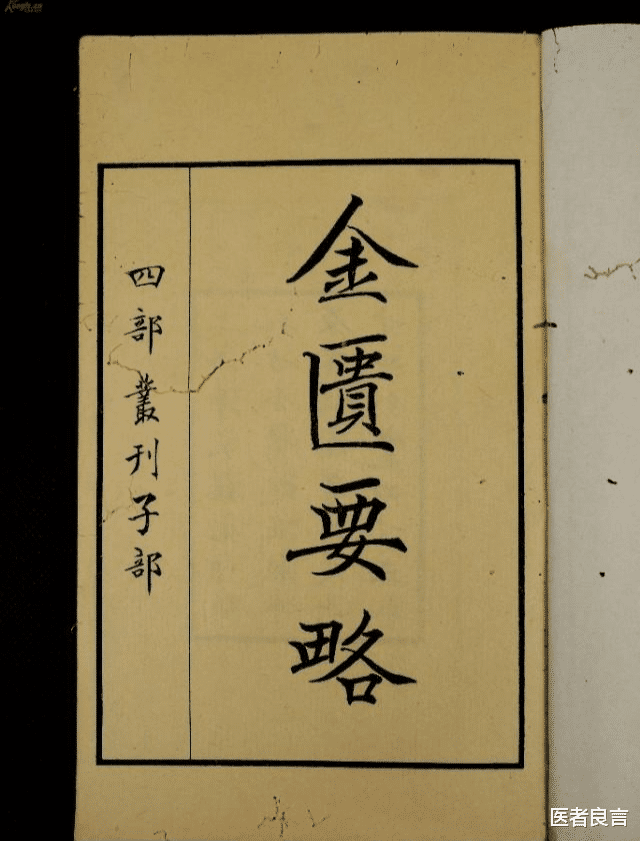 金匱要略
四部叢刊子部
医者良言